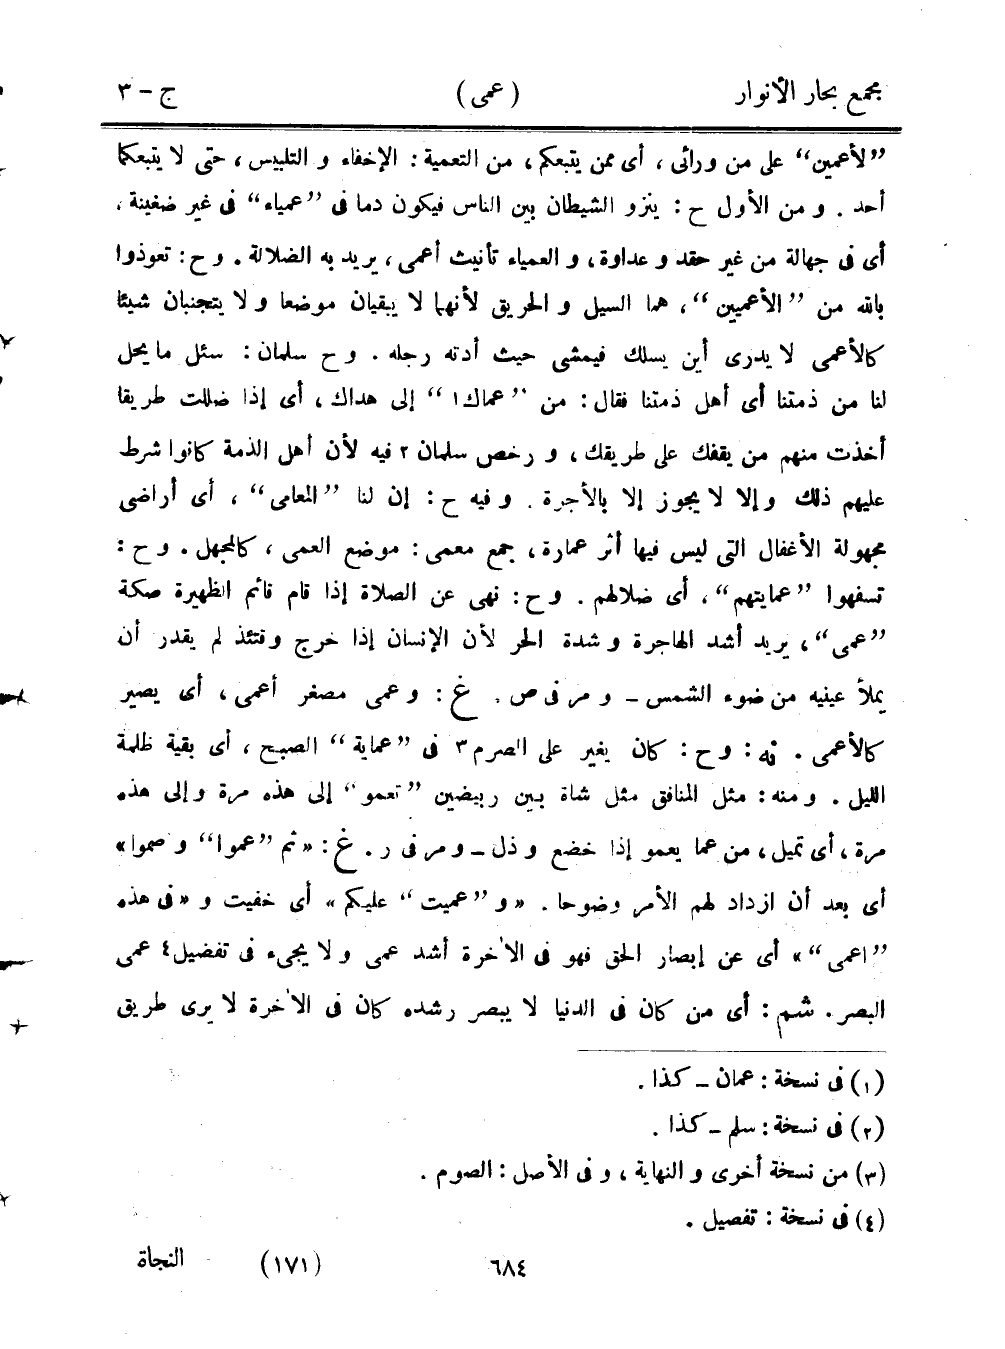 مجمع بحار الأنوار (عمى) ج – ٣
”لأعمين“ على من ورائى ، أى ممن يتبعكم ، من التعمية : الإخفاء و التلبيس ، حتى لا يتبعكما
أحد . و من الأول ح : ينزو الشيطان بين الناس فيكون دما فى ”عمياء“ فى غير ضغينة ،
أى فى جهالة من غير حقد و عداوة ، و العمياء تأنيث أعمى ، يريد به الضلالة . و ح : تعوذوا
بالله من ”الأعميين“ ، هما السيل و الحريق لأنهما لا يبقيان موضعا و لا يتجنبان شيئا
كالأعمى لا يدرى أين يسلك فيمشى حيث أدته رجله . و ح سلمان : سئل ما يحل
لنا من ذمتنا أى أهل ذمتنا فقال : من ”عماك١“ إلى هداك ، أى إذا ضللت طريقا
أخذت منهم من يقفك على طريقك ، و رخص سلمان ٢ فيه لأن أهل الذمة كانوا شرط
عليهم ذلك و إلا لا يجوز إلا بالأجرة . و فيه ح : إن لنا ”المعامى“ ، أى أراضى
مجهولة الأغفال التى ليس فيها أثر عمارة ، جمع معمى : موضع العمى ، كالمجهل . و ح :
تسفهوا ”عمايتهم“ ، أى ضلالهم . و ح : نهى عن الصلاة إذا قام قائم الظهيرة صكة
”عمى“ ، يريد أشد الهاجرة و شدة الحر لأن الإنسان إذا خرج وقتئذ لم يقدر أن
يملأ عينيه من ضوء الشمس – و مر فى ص . غ : و عمى مصغر أعمى ، أى يصير
كالأعمى . نه : و ح : كان يغير على الصرم ٣ فى ”عماية“ الصبح ، أى بقية ظلمة
الليل . و منه : مثل المنافق مثل شاة بين ربيضين ”تعمو“ إلى هذه مرة و إلى هذه
مرة ، أى تميل ، من عما يعمو إذا خضع و ذل – و مر فى ر . غ : « ثم ”عموا“ و صموا »
أى بعد أن ازداد لهم الأمر وضوحا . « و ”عميت“ عليكم » أى خفيت و « فى هذه
”اعمى“ » أى عن إبصار الحق فهو فى الآخرة أشد عمى و لا يجىء فى تفضيل ٤ عمى
البصر . شم : أى من كان فى الدنيا لا يبصر رشده كان فى الآخرة لا يرى طريق
(١) فى نسخة : عمان – كذا .
(٢) فى نسخة : سلم – كذا .
(٣) من نسخة أخرى و النهاية ، و فى الأصل : الصوم .
(٤) فى نسخة : تفصيل .
٦٨٤ (١٧١) النجاة